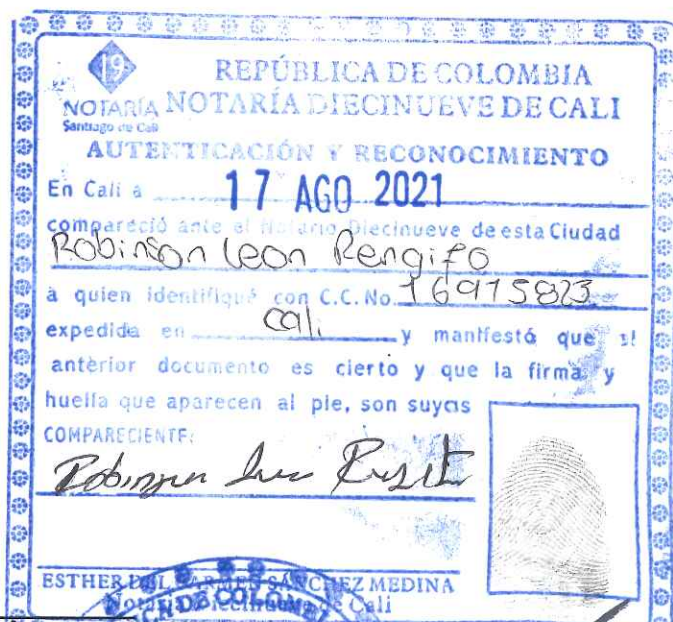 19
NOTARÍA
Santiago de Cali
REPÚBLICA DE COLOMBIA
NOTARÍA DIECINUEVE DE CALI
AUTENTICACIÓN Y RECONOCIMIENTO
En Cali a 17 AGO 2021
compareció ante el Notario Diecinueve de esta Ciudad
Robinson Leon Rengifo
a quien identifiqué con C.C. No. 16915823
expedida en Cali y manifestó que el
anterior documento es cierto y que la firma y
huella que aparecen al pie, son suyas
COMPARECIENTE:
ESTHER DEL CARMEN SÁNCHEZ MEDINA
Notaria Diecinueve de Cali
DE COLOM